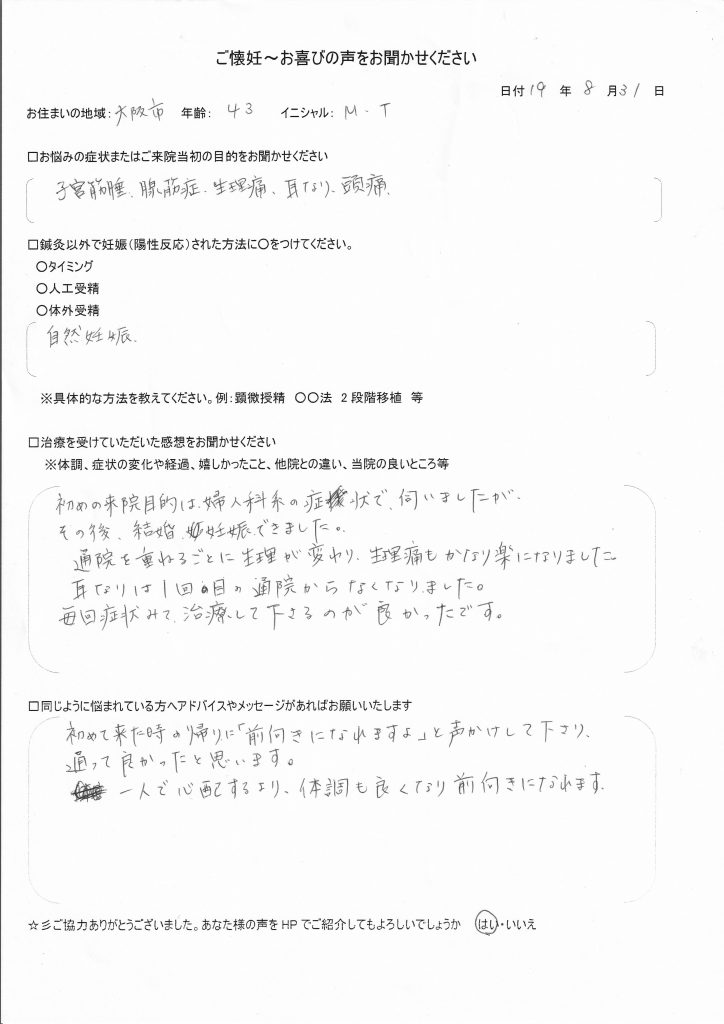 ご懐妊～お喜びの声をお聞かせください
日付 19 年 8 月 31 日
お住まいの地域： 大阪市 年齢： 43 イニシャル： M・T
□お悩みの症状またはご来院当初の目的をお聞かせください
子宮筋腫、腺筋症、生理痛、耳なり、頭痛、
□鍼灸以外で妊娠（陽性反応）された方法に〇をつけてください。
〇タイミング
〇人工受精
〇体外受精
自然妊娠、
※具体的な方法を教えてください。例：顕微授精 〇〇法 2段階移植 等
□治療を受けていただいた感想をお聞かせください
※体調、症状の変化や経過、嬉しかったこと、他院との違い、当院の良いところ等
初めの来院目的は、婦人科系の症状で、伺いましたが、
その後、結婚、妊娠できました。
通院を重ねるごとに生理が変わり、生理痛もかなり楽になりました。
耳なりは1回目の通院からなくなりました。
毎回症状みて、治療して下さるのが良かったです。
□同じように悩まれている方へアドバイスやメッセージがあればお願いいたします
初めて来た時の帰りに「前向きになれますよ」と声かけして下さり、
通って良かったと思います。
一人で心配するより、体調も良くなり前向きになれます。
☆彡ご協力ありがとうございました。あなた様の声をHPでご紹介してもよろしいでしょうか はい・いいえ